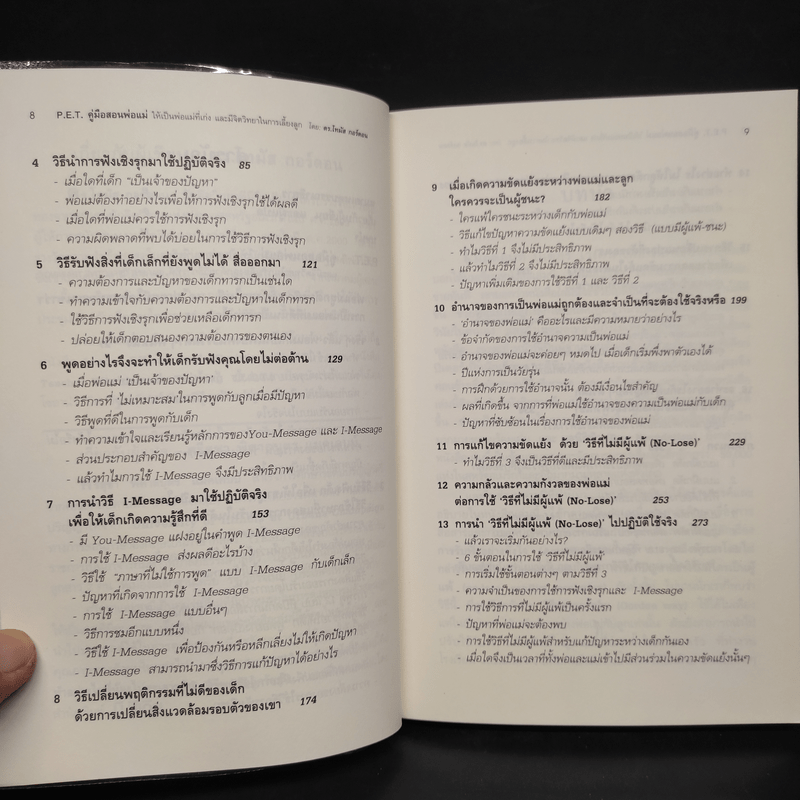 8 P.E.T. คู่มือสอนพ่อแม่ ให้เป็นพ่อแม่ที่เก่ง และมีจิตวิทยาในการเลี้ยงลูก โดย ดร.โทมัส กอร์ดอน
4 วิธีนำการฟังเชิงรุกมาใช้ปฏิบัติจริง 85
- เมื่อใดที่เด็ก "เป็นเจ้าของปัญหา"
- พ่อแม่ต้องทำอย่างไรเพื่อให้การฟังเชิงรุกใช้ได้ผลดี
- เมื่อใดที่พ่อแม่ควรใช้การฟังเชิงรุก
- ความผิดพลาดที่พบได้บ่อยในการใช้วิธีการฟังเชิงรุก
5 วิธีรับฟังสิ่งที่เด็กเล็กที่ยังพูดไม่ได้ สื่อออกมา 121
- ความต้องการและปัญหาของเด็กทารกเป็นเช่นใด
- ทำความเข้าใจกับความต้องการและปัญหาในเด็กทารก
- ใช้วิธีการฟังเชิงรุกเพื่อช่วยเหลือเด็กทารก
- ปล่อยให้เด็กตอบสนองความต้องการของตนเอง
6 พูดอย่างไรจึงจะทำให้เด็กรับฟังคุณโดยไม่ต่อต้าน 129
- เมื่อพ่อแม่ 'เป็นเจ้าของปัญหา'
- วิธีการที่ 'ไม่เหมาะสม'ในการพูดกับลูกเมื่อมีปัญหา
- วิธีพูดที่ดีในการพูดกับเด็ก
- ทำความเข้าใจและเรียนรู้หลักการของYou-Message และ I-Message
- ส่วนประกอบสำคัญของ I-Message
- แล้วทำไมการใช้ I-Message จึงมีประสิทธิภาพ
7 การนำวิธี I-Message มาใช้ปฏิบัติจริง
เพื่อให้เด็กเกิดความรู้สึกที่ดี 153
- มี You-Message แฝงอยู่ในคำพูด I-Message
- การใช้ I-Message ส่งผลดีอะไรบ้าง
- วิธีใช้ "ภาษาที่ไม่ใช้การพูด" แบบ I-Message กับเด็กเล็ก
- ปัญหาที่เกิดจากการใช้ I-Message
- การใช้ I-Message แบบอื่นๆ
- วิธีการชมอีกแบบหนึ่ง
- วิธีใช้ I-Message เพื่อป้องกันหรือหลีกเลี่ยงไม่ให้เกิดปัญหา
- I-Message สามารถนำมาซึ่งวิธีการแก้ปัญหาได้อย่างไร
8 วิธีเปลี่ยนพฤติกรรมที่ไม่ดีของเด็ก
ด้วยการเปลี่ยนสิ่งแวดล้อมรอบตัวของเขา 174
9
9 เมื่อเกิดความขัดแย้งระหว่างพ่อแม่และลูก
ใครควรจะเป็นผู้ชนะ? 182
- ใครแพ้ใครชนะระหว่างเด็กกับพ่อแม่
- วิธีแก้ไขปัญหาความขัดแย้งแบบเดิมๆ สองวิธี (แบบมีผู้แพ้-ชนะ)
- ทำไมวิธีที่ 1 จึงไม่มีประสิทธิภาพ
- แล้วทำไมวิธีที่ 2 จึงไม่มีประสิทธิภาพ
- ปัญหาเพิ่มเติมของการใช้วิธีที่ 1 และ วิธีที่ 2
10 อำนาจของการเป็นพ่อแม่ถูกต้องและจำเป็นที่จะต้องใช้จริงหรือ 199
- 'อำนาจของพ่อแม่' คืออะไรและมีความหมายว่าอย่างไร
- ข้อจำกัดของการใช้อำนาจความเป็นพ่อแม่
- อำนาจของพ่อแม่จะค่อยๆ หมดไป เมื่อเด็กเริ่มพึ่งพาตัวเองได้
- ปีแห่งการเป็นวัยรุ่น
- การฝึกด้วยการใช้อำนาจนั้น ต้องมีเงื่อนไขสำคัญ
- ผลที่เกิดขึ้น จากการที่พ่อแม่ใช้อำนาจของความเป็นพ่อแม่กับเด็ก
- ปัญหาที่ซับซ้อนในเรื่องการใช้อำนาจของพ่อแม่
11 การแก้ไขความขัดแย้ง ด้วย 'วิธีที่ไม่มีผู้แพ้ (No-Lose)' 229
- ทำไมวิธีที่ 3 จึงเป็นวิธีที่ดีและมีประสิทธิภาพ
12 ความกลัวและความกังวลของพ่อแม่
ต่อการใช้ 'วิธีที่ไม่มีผู้แพ้ (No-Lose)' 253
13 การนำ 'วิธีที่ไม่มีผู้แพ้ (No-Lose)' ไปปฏิบัติใช้จริง 273
- แล้วเราจะเริ่มกันอย่างไร?
- 6 ขั้นตอนในการใช้ 'วิธีที่ไม่มีผู้แพ้'
- การเริ่มใช้ขั้นตอนต่างๆ ตามวิธีที่ 3
- ความจำเป็นของการใช้การฟังเชิงรุกและ I-Message
- การใช้วิธีการที่ไม่มีผู้แพ้เป็นครั้งแรก
- ปัญหาที่พ่อแม่จะต้องพบ
- การใช้วิธีที่ไม่มีผู้แพ้สำหรับแก้ปัญหาระหว่างเด็กกันเอง
- เมื่อใดจึงเป็นเวลาที่ทั้งพ่อและแม่เข้าไปมีส่วนร่วมในความขัดแย้งนั้นๆ